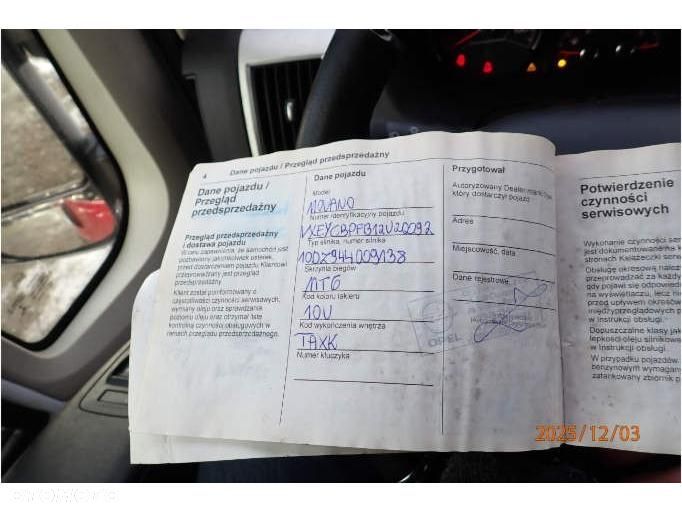 4 Dane pojazdu / Przegląd przedsprzedażny
Dane pojazdu /
Przegląd
przedsprzedażny
Przegląd przedsprzedażny
i dostawa pojazdu
W celu zapewnienia, że samochód jest
pozbawiony jakichkolwiek usterek,
przed dostarczeniem pojazdu Klientowi
przeprowadzany jest przegląd
przedsprzedażny.
Klient został poinformowany o
częstotliwości czynności serwisowych,
wymiany oleju oraz sprawdzania
poziomu oleju oraz otrzymał listę
kontrolną czynności obsługowych w
ramach przeglądu przedsprzedażnego.
Dane pojazdu
Model
MOVANO
Numer identyfikacyjny pojazdu
VXEYCBPFB12U20092
Typ silnika, numer silnika
10DZ944009138
Skrzynia biegów
MT6
Kod koloru lakieru
10V
Kod wykończenia wnętrza
TAXK
Numer kluczyka
Przygotował
Autoryzowany Dealer
który dostarczył pojazd
Adres
Miejscowość, data
Dane rejestrowe
Potwierdzenie
czynności
serwisowych
Wykonanie czynności
jest dokumentowane
stronach Książeczki
Obsługę okresową należy
przeprowadzać za każdym
gdy pojawi się
na wyświetlaczu, lecz
przed upływem
międzyprzeglądowych
w Instrukcji obsługi.
Dopuszczalne klasy
lepkości oleju
w Instrukcji obsługi.
W przypadku pojazdów
benzynowym
zatankowany zbiornik
2025/12/03
OTOMOTO